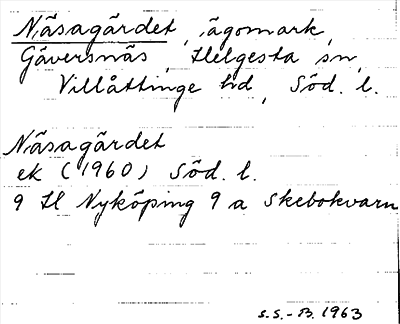 Näsagärdet, ägomark,
Gäversnäs, Helgesta sn,
Villåttinge hd, Söd. l.
Näsagärdet
ek (1960) Söd. l.
9 H Nyköping 9 a Skebokvarn
S.S.-B. 1963